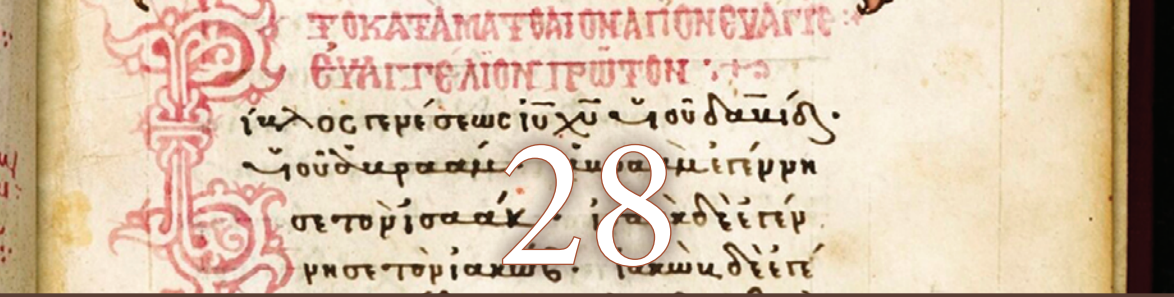 ΤΟ ΚΑΤΑ ΜΑΤΘΑΙΟΝ ΑΓΙΟΝ ΕΥΑΓΓΕ
ΕΥΑΓΓΕΛΙΟΝ ΠΡΩΤΟΝ
Βίβλος γενέσεως ἰῦ χῦ υἱοῦ δαυίδ.
υἱοῦ ἀβραάμ. ἀβραὰμ ἐγέννη
σε τὸν ἰσαάκ. ἰσαὰκ δὲ ἐγέν
νησε τὸν ἰακώβ. ἰακὼβ δὲ ἐγέ
28